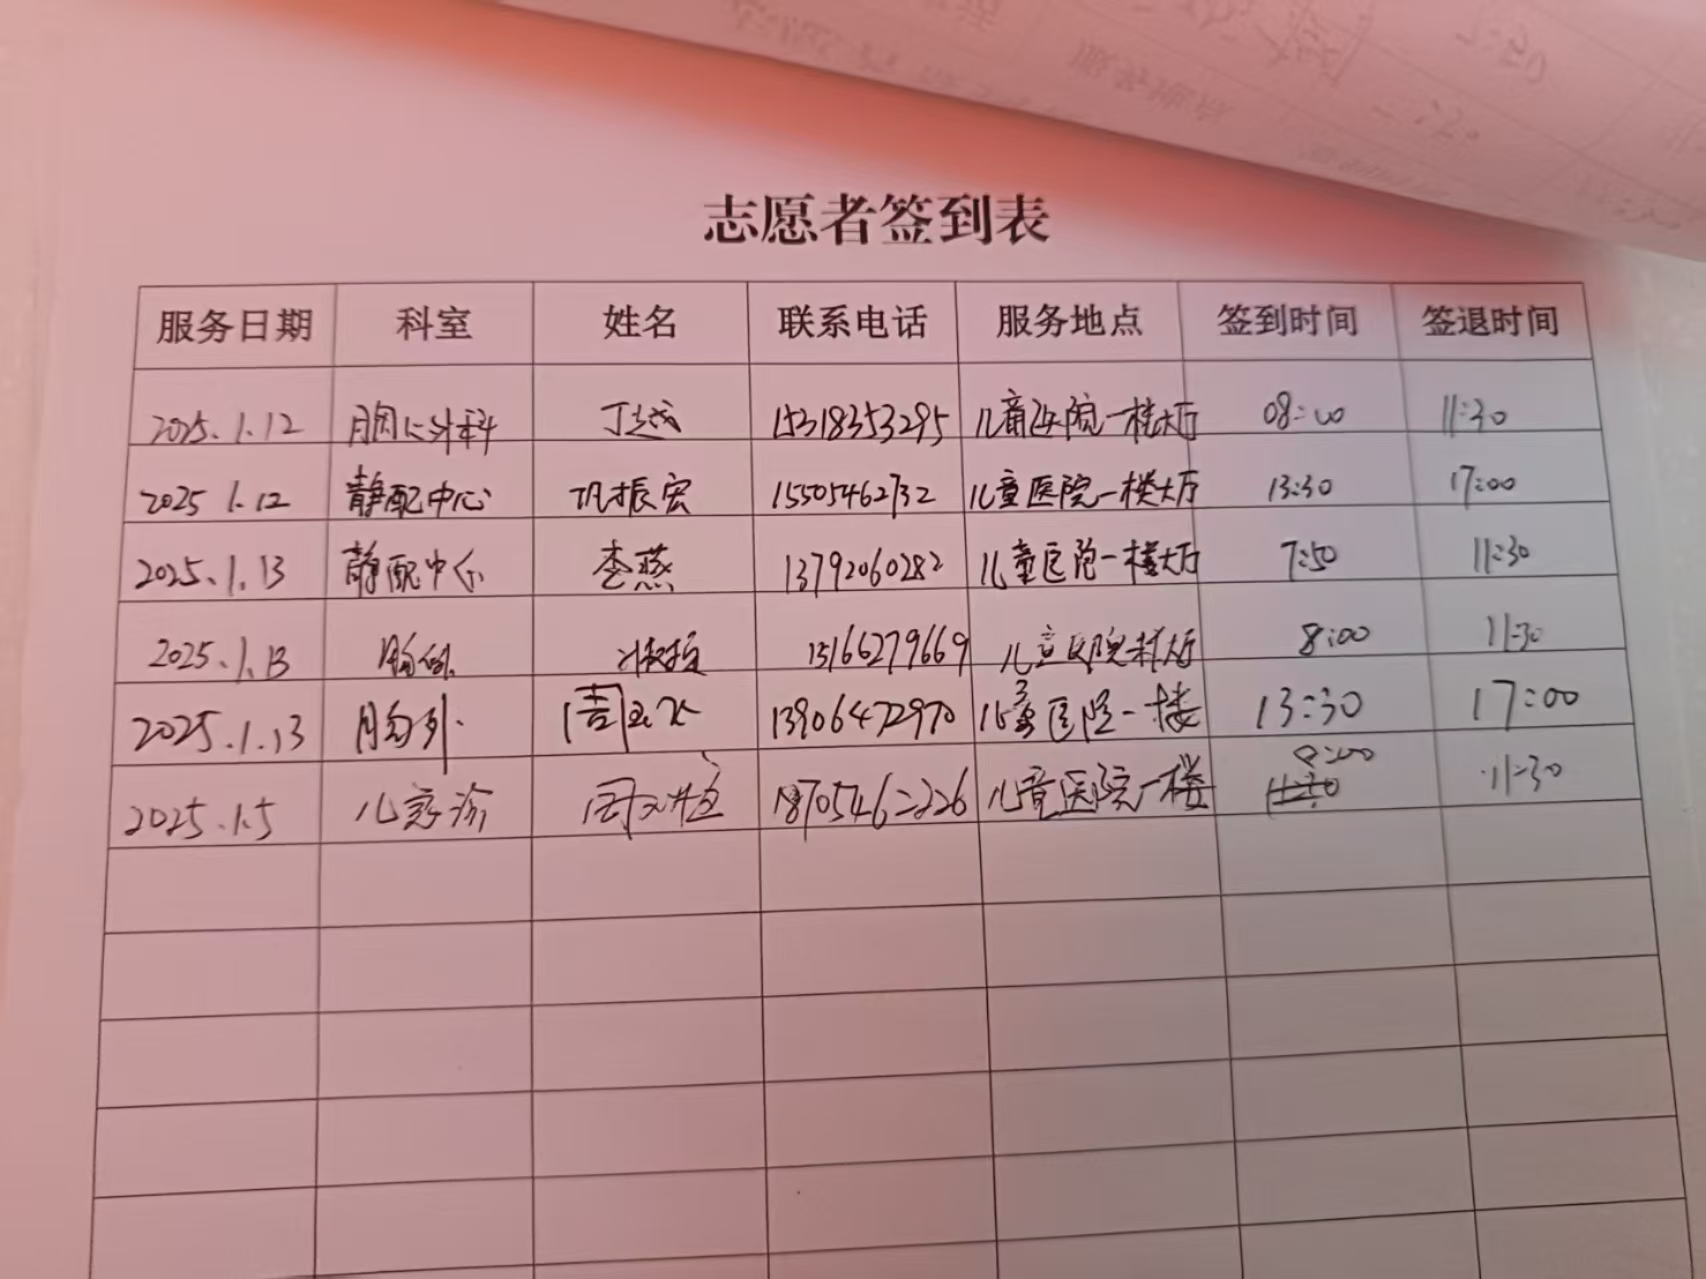 志愿者签到表
服务日期 科室 姓名 联系电话 服务地点 签到时间 签退时间
2025.1.12 胸心外科 丁越 15318353295 儿童医院一楼大厅 08:00 11:30
2025 1.12 静配中心 巩振宏 15505462732 儿童医院一楼大厅 13:30 17:00
2025.1.13 静配中心 李燕 13792060282 儿童医院一楼大厅 7:50 11:30
2025.1.13 胸外 15166279669 儿童医院一楼大厅 8:00 11:30
2025.1.13 胸外 13906472970 儿童医院一楼 13:30 17:00
2025.1.5 儿急诊 18705462226 儿童医院一楼 8:00 11:30